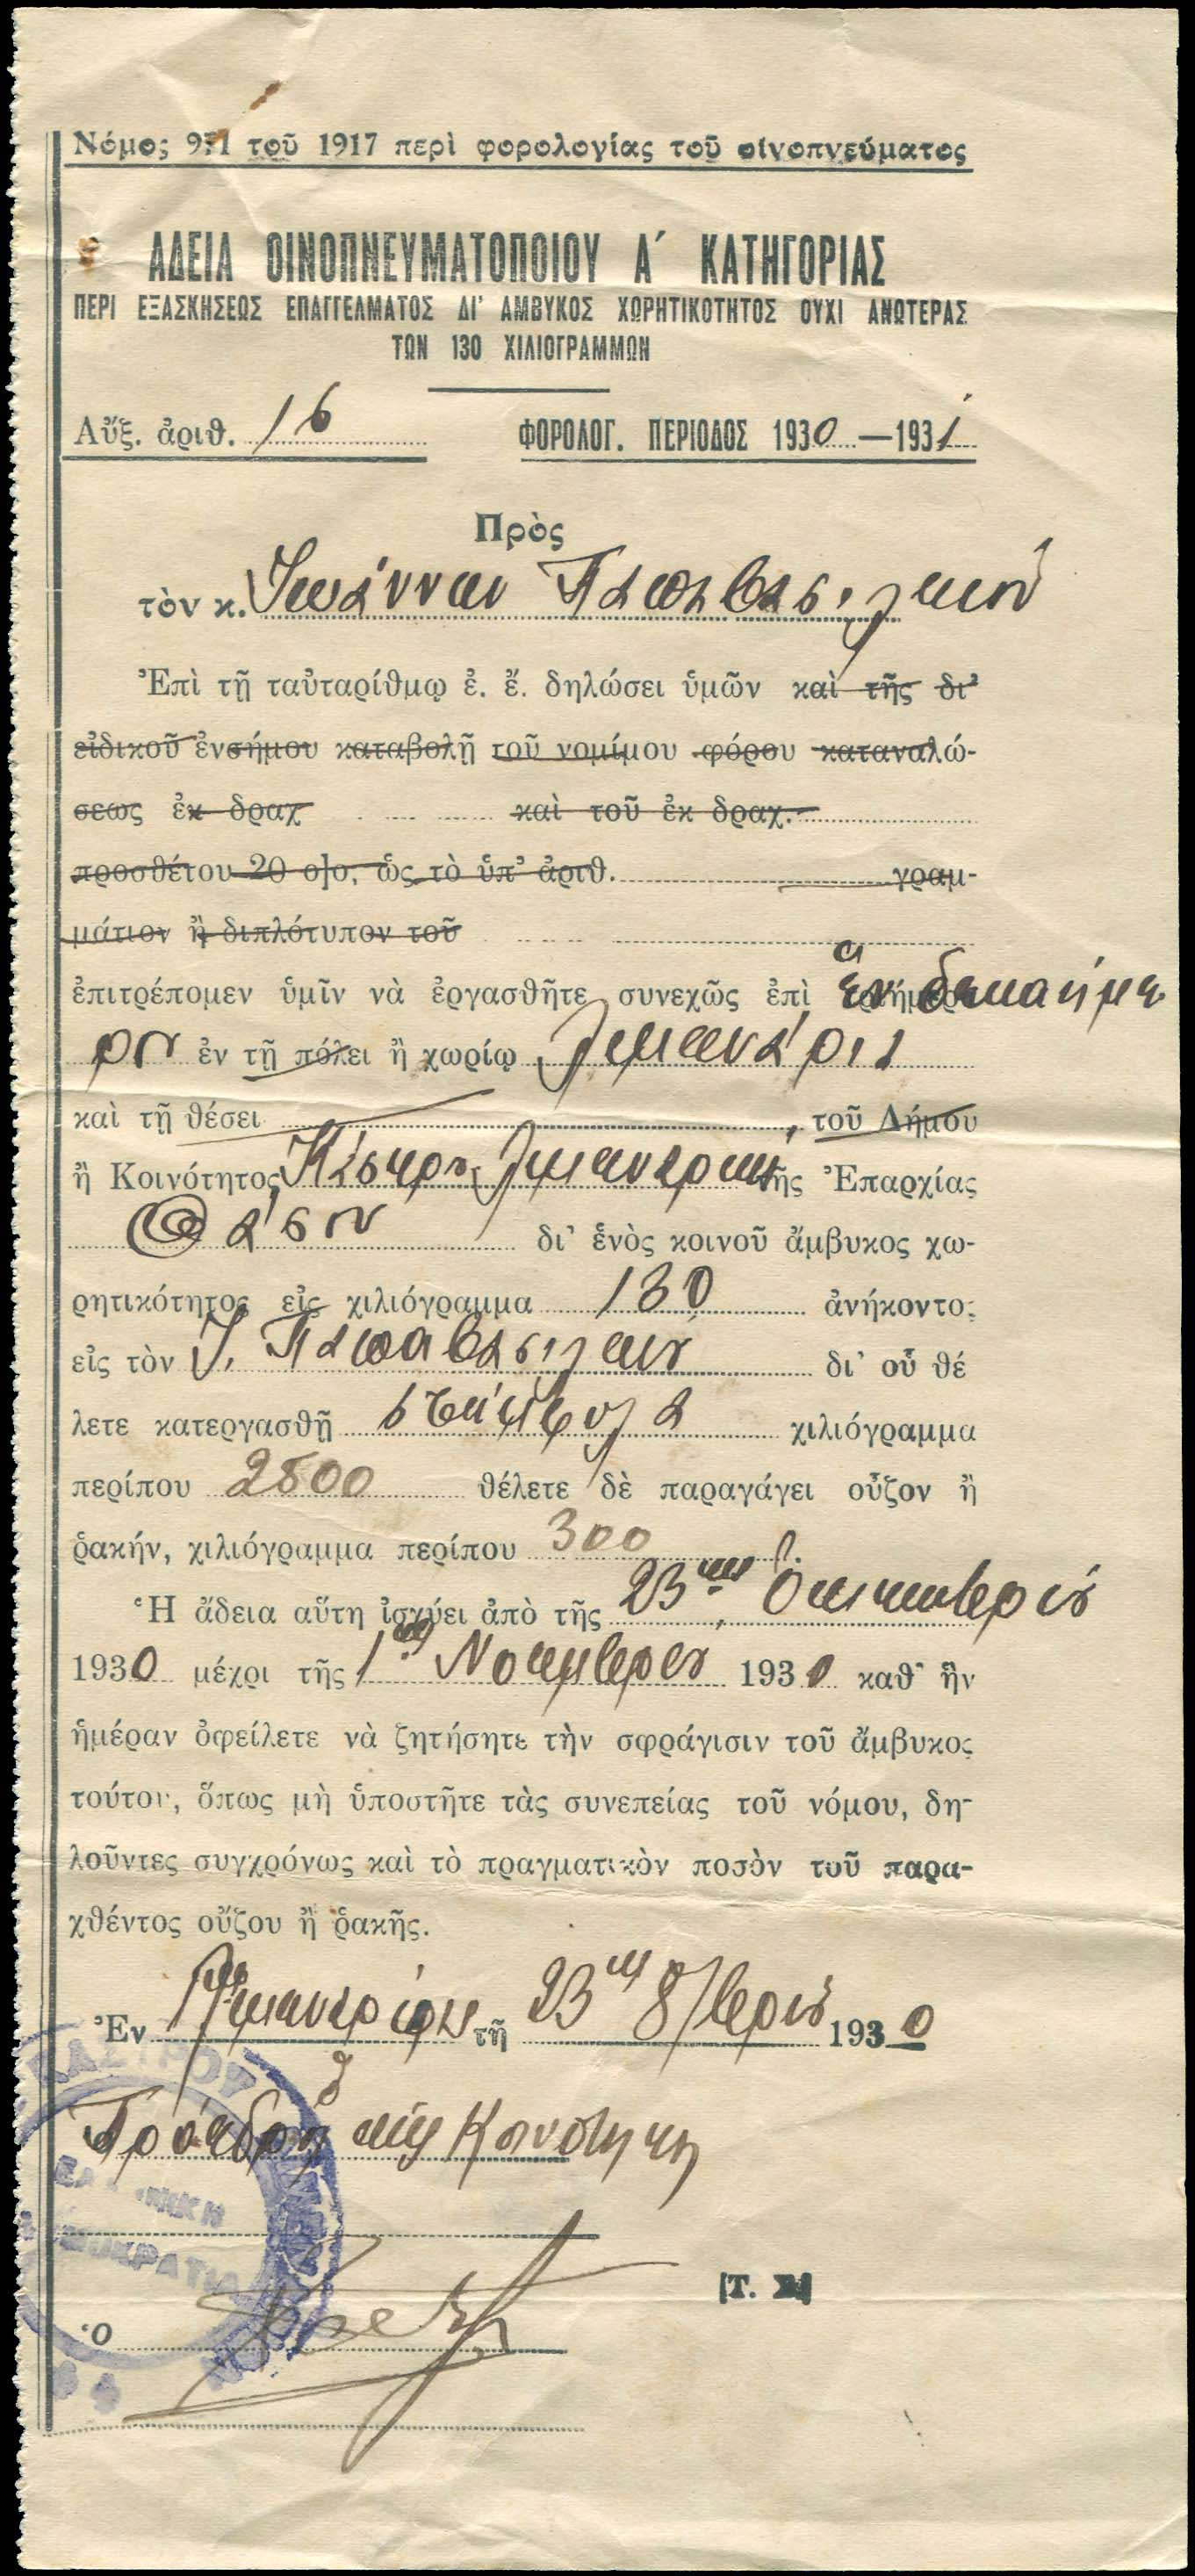 Νόμος 971 τοῦ 1917 περὶ φορολογίας τοῦ οἰνοπνεύματος
ΑΔΕΙΑ ΟΙΝΟΠΝΕΥΜΑΤΟΠΟΙΟΥ Α΄ ΚΑΤΗΓΟΡΙΑΣ
ΠΕΡΙ ΕΞΑΣΚΗΣΕΩΣ ΕΠΑΓΓΕΛΜΑΤΟΣ ΔΙ' ΑΜΒΥΚΟΣ ΧΩΡΗΤΙΚΟΤΗΤΟΣ ΟΥΧΙ ΑΝΩΤΕΡΑΣ
ΤΩΝ 130 ΧΙΛΙΟΓΡΑΜΜΩΝ
Αὔξ. ἀριθ. 16 ΦΟΡΟΛΟΓ. ΠΕΡΙΟΔΟΣ 1930 —1931
Πρὸς
τὸν κ. Ἰωάννην Παπαβασιλείου
Ἐπὶ τῇ ταὐταρίθμῳ ἐ. ἔ. δηλώσει ὑμῶν καὶ τῆς δι'
εἰδικοῦ ἐνσήμου καταβολῇ τοῦ νομίμου φόρου καταναλώ-
σεως ἐκ δραχ καὶ τοῦ ἐκ δραχ.
προσθέτου 20 ο]ο, ὡς τὸ ὑπ' ἀριθ. γραμ-
μάτιον ἢ διπλότυπον τοῦ
ἐπιτρέπομεν ὑμῖν νὰ ἐργασθῆτε συνεχῶς ἐπὶ
ἐν τῇ πόλει ἢ χωρίῳ Λιμενάρια
καὶ τῇ θέσει , τοῦ Δήμου
ἢ Κοινότητος Κάστρου Λιμεναρίων τῆς Ἐπαρχίας
Θάσου δι' ἑνὸς κοινοῦ ἄμβυκος χω-
ρητικότητος εἰς χιλιόγραμμα 130 ἀνήκοντος
εἰς τὸν Ι. Παπαβασιλείου δι' οὗ θέ
λετε κατεργασθῇ στέμφυλα χιλιόγραμμα
περίπου 2500 θέλετε δὲ παραγάγει οὖζον ἢ
ῥακήν, χιλιόγραμμα περίπου 300
Ἡ ἄδεια αὕτη ἰσχύει ἀπὸ τῆς 23ης Ὀκτωβρίου
1930 μέχρι τῆς 1ης Νοεμβρίου 1930 καθ' ἣν
ἡμέραν ὀφείλετε νὰ ζητήσητε τὴν σφράγισιν τοῦ ἄμβυκος
τούτου, ὅπως μὴ ὑποστῆτε τὰς συνεπείας τοῦ νόμου, δη-
λοῦντες συγχρόνως καὶ τὸ πραγματικὸν ποσὸν τοῦ παρα-
χθέντος οὔζου ἢ ῥακῆς.
Ἐν Λιμεναρίοις τῇ 23ῃ 8/βρίου 1930
ὁ
Πρόεδρος τῆς Κοινότητος
(Τ. Σ)
Ὁ